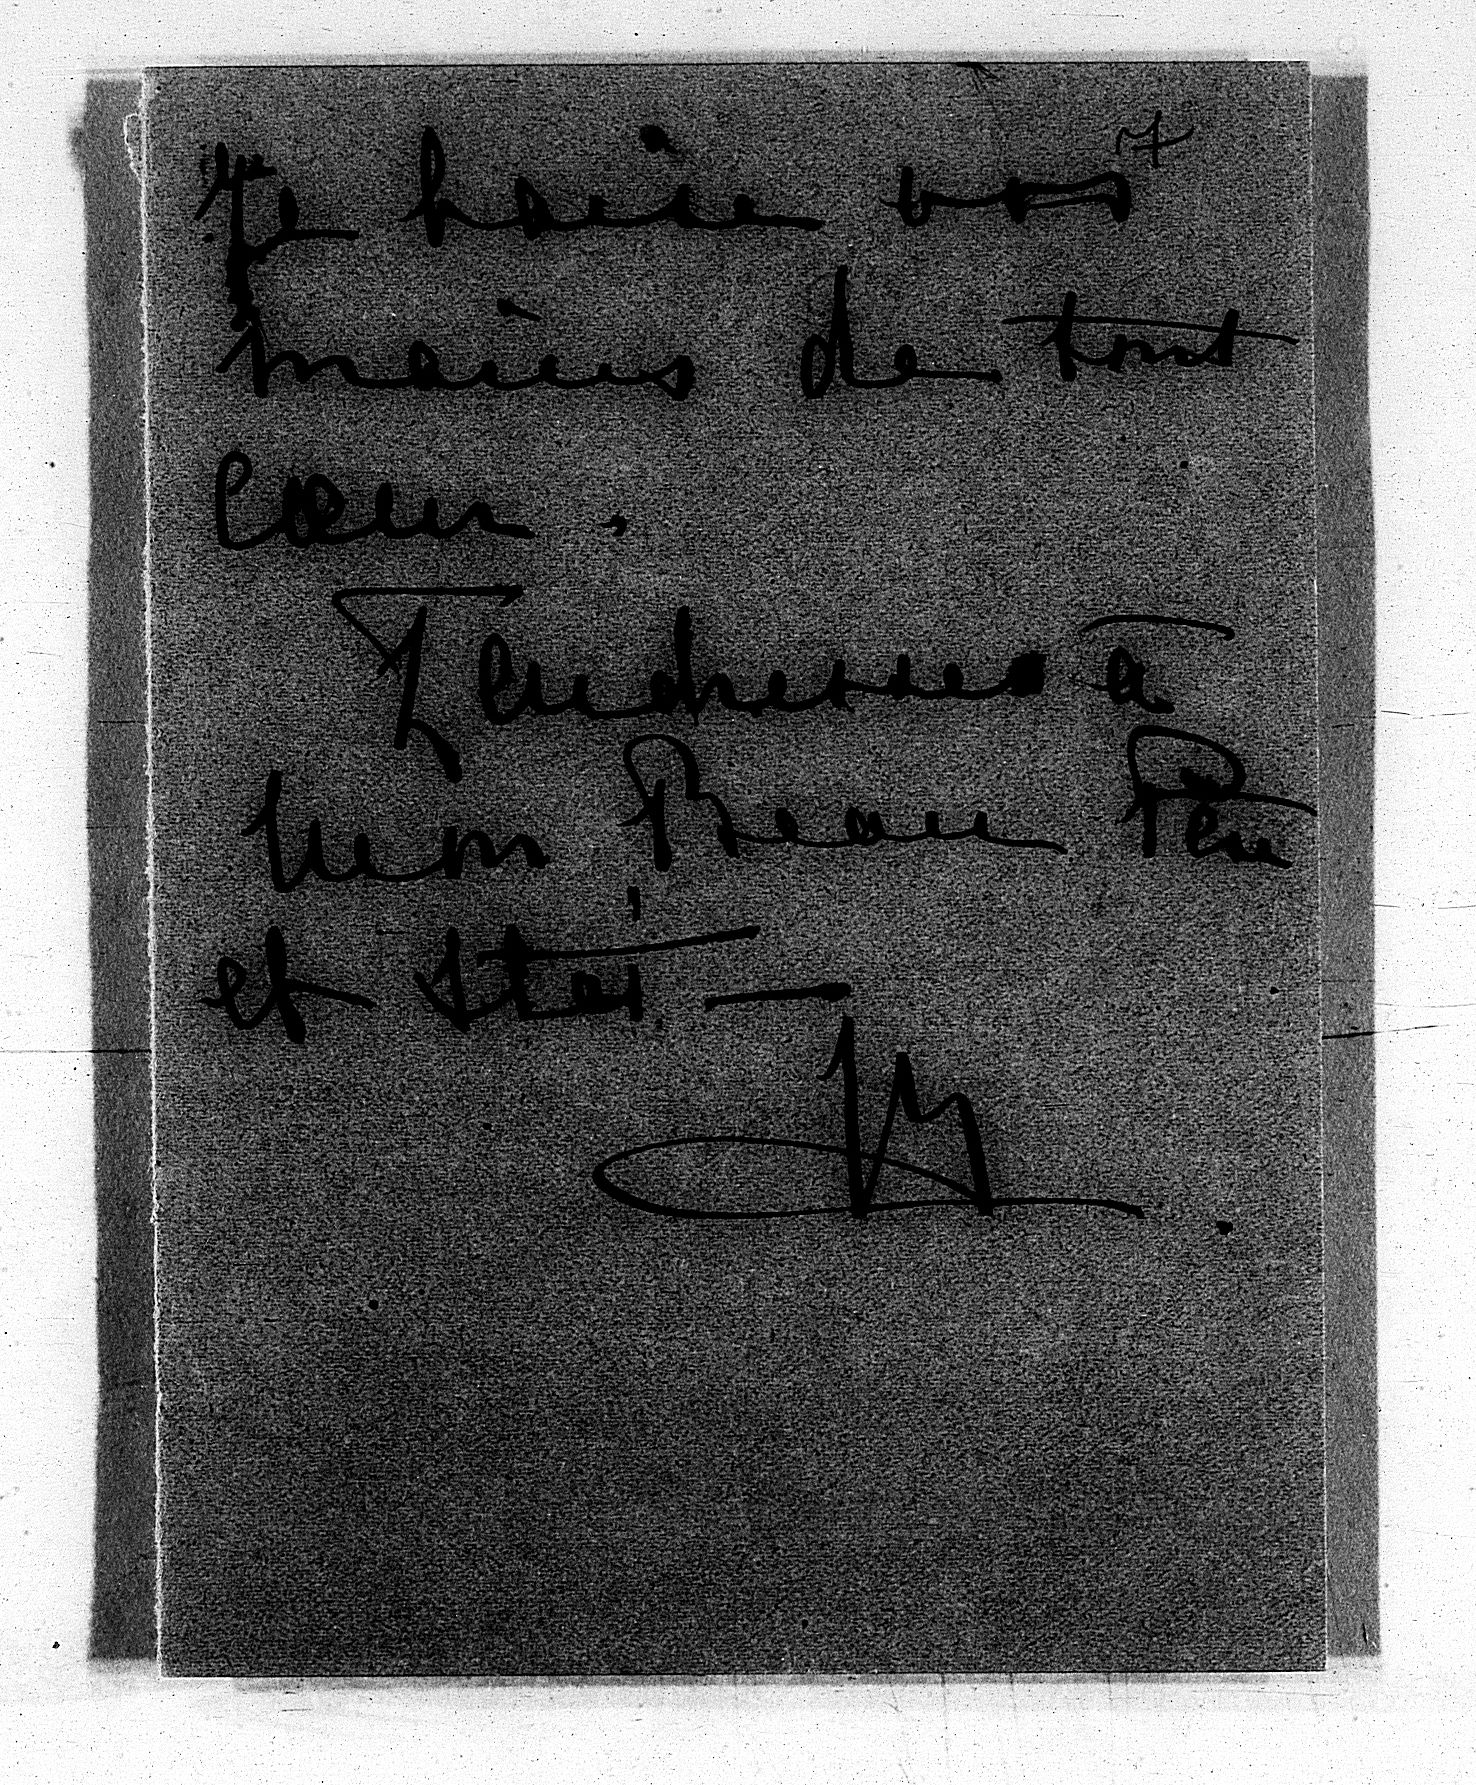 7
Je baise vos
mains de tout
cœur.
Tendresses à
mon Beau Père
et Stéï —
M.